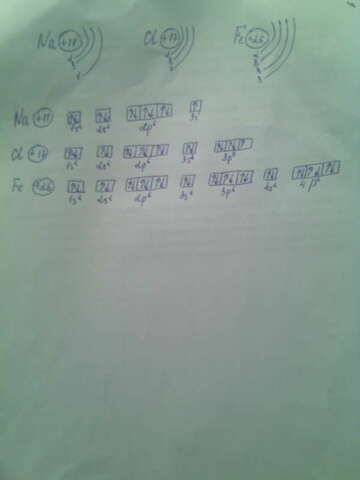 Na +11 Cl +17 Fe +26
Na +11
1s² 2s² 2p⁶ 3s¹
Cl +17
1s² 2s² 2p⁶ 3s² 3p⁵
Fe +26
1s² 2s² 2p⁶ 3s² 3p⁶ 4s² 4p⁶